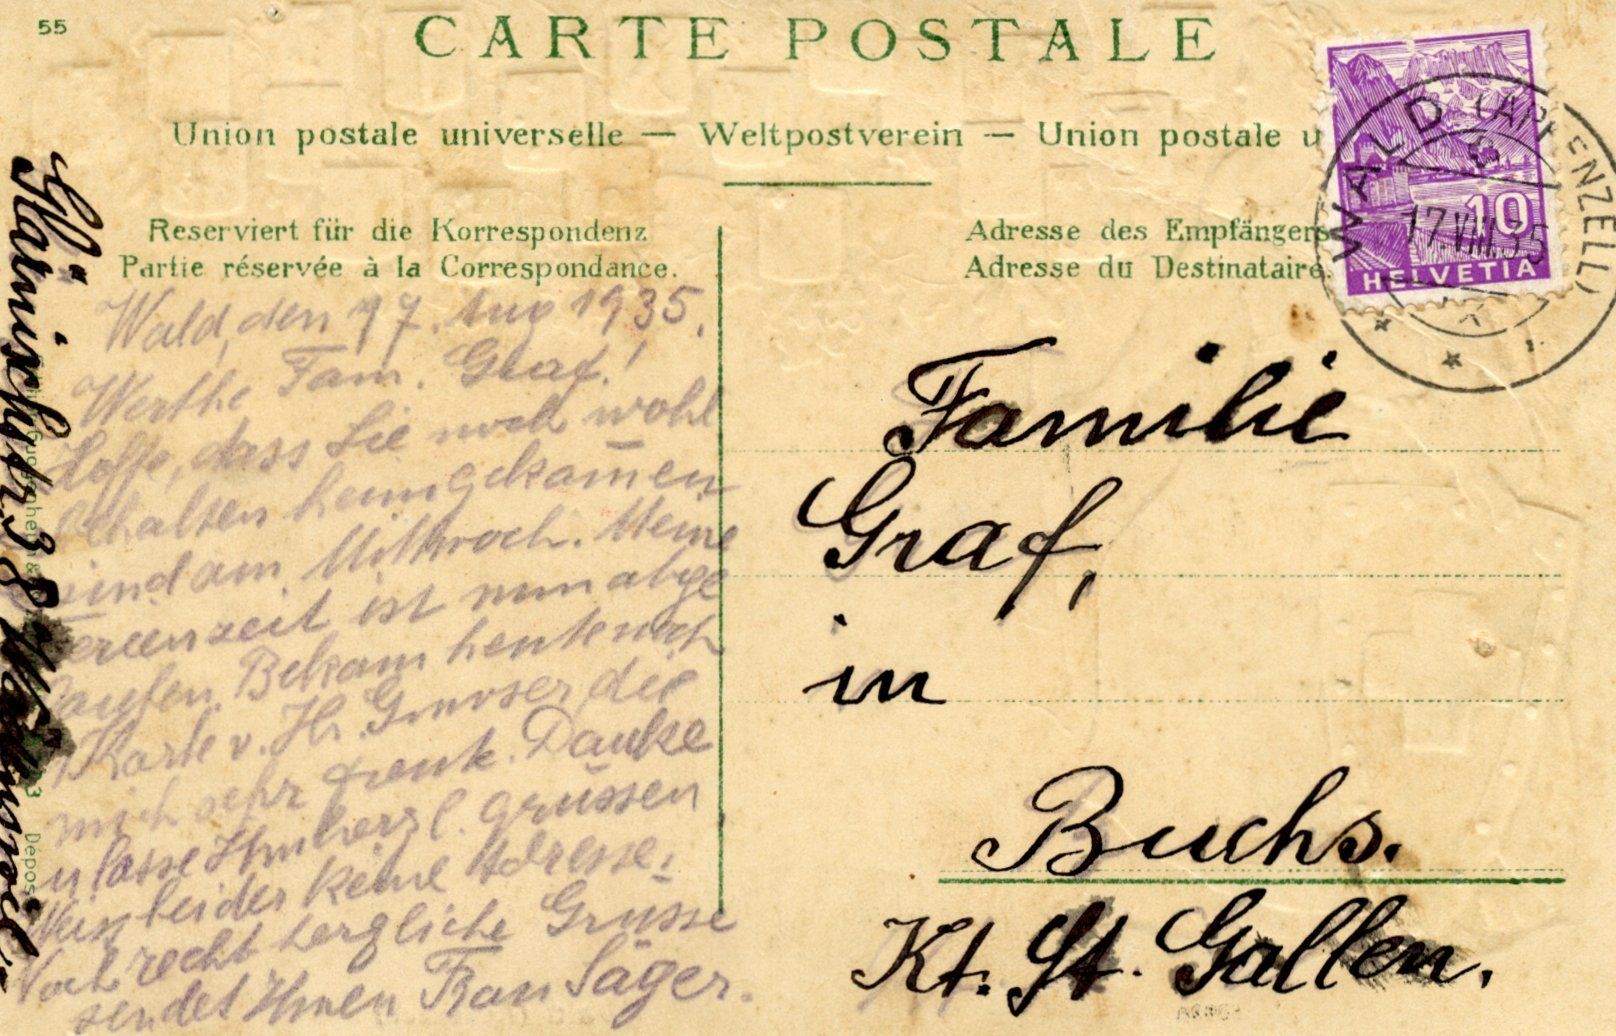 55
CARTE POSTALE
Union postale universelle — Weltpostverein — Union postale u
Reserviert für die Korrespondenz
Partie réservée à la Correspondance.
Adresse des Empfängers
Adresse du Destinataire.
WALD (APPENZELL)
17.VIII.35
10
HELVETIA
Wald, den 17. Aug 1935.
Werthe Fam. Graf!
Hoffe, dass Sie noch wohl
behalten heimgekom̄en
sind am Mittwoch. Meine
Ferienzeit ist nun abge
laufen. Bekam heute noch
Karte v. Hr. die
mich sehr freute. Danke
u lasse Ihn herzl. grüssen
Weiss leider keine Adresse.
Noch recht herzliche Grüsse
sendet Ihnen Frau Säger.
Familie
Graf,
in
Buchs.
Kt. St. Gallen.
Déposé